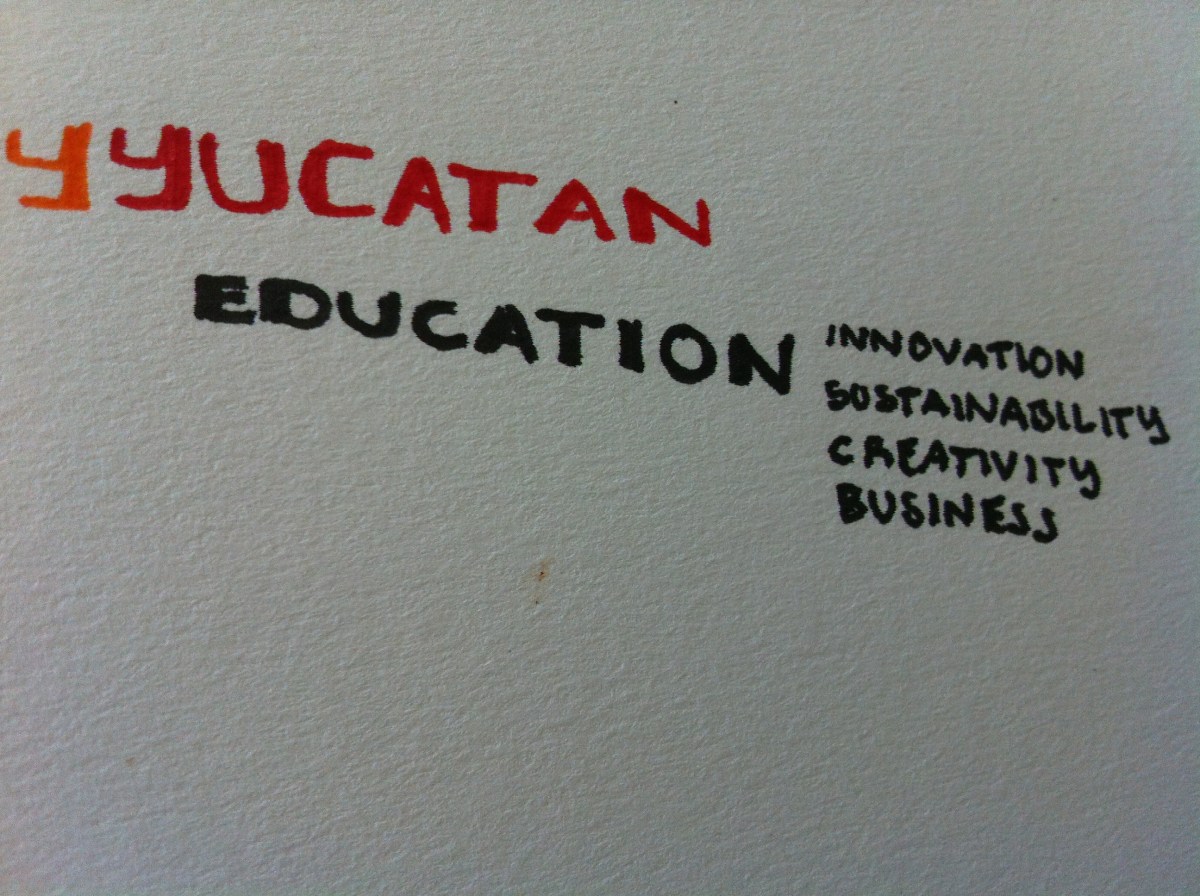 Y YUCATAN
EDUCATION
INNOVATION
SUSTAINABILITY
CREATIVITY
BUSINESS